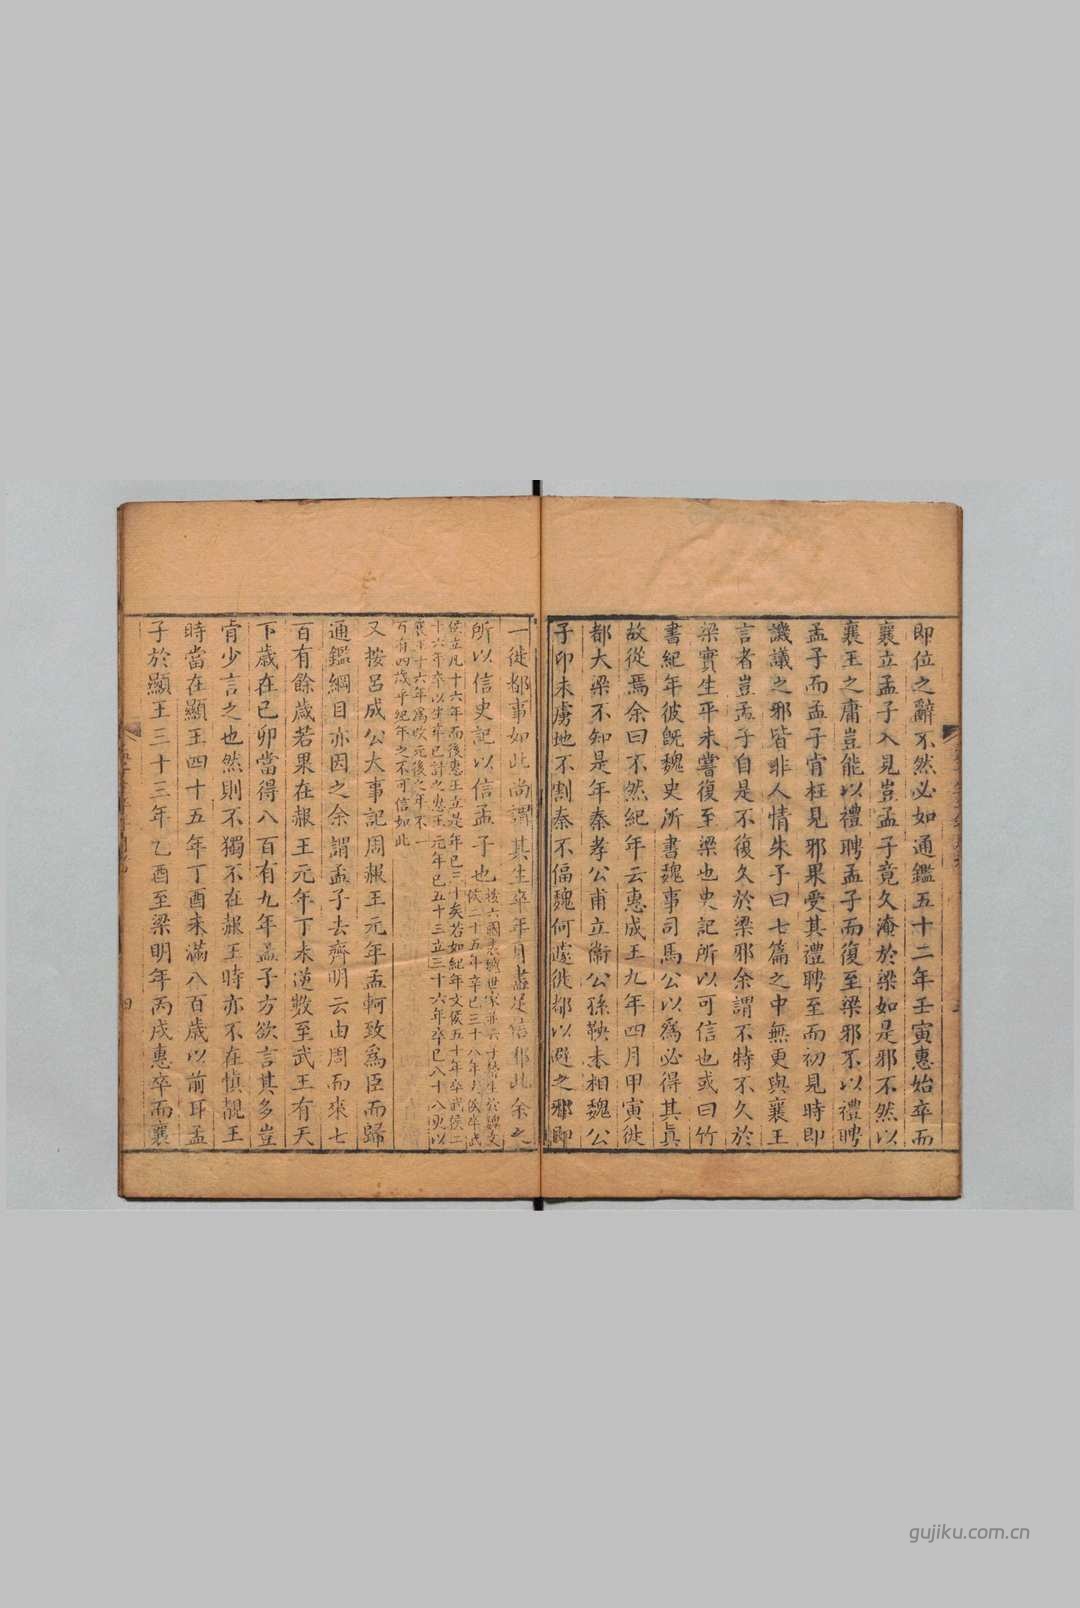 即位之辭不然必如通鑑五十二年壬寅惠始卒而
襄立孟子入見豈孟子竟久淹於梁如是邪不然以
襄王之庸豈能以禮聘孟子而復至梁邪不以禮聘
孟子而孟子肯枉見邪果受其禮聘至而初見時即
譏議之邪皆非人情朱子曰七篇之中無更與襄王
言者豈孟子自是不復久於梁邪余謂不特不久於
梁實生平未嘗復至梁也史記所以可信也或曰竹
書紀年彼既魏史所書魏事司馬公以為必得其真
故從焉余曰不然紀年云惠成王九年四月甲寅徙
都大梁不知是年秦孝公甫立衞公孫鞅未相魏公
子卬未虜地不割秦不偪魏何遽徙都以避之邪即
一徙都事如此尚謂其生卒年月盡足信邪此余之
所以信史記以信孟子也
按六國表魏世家並云子罃生於魏文
侯二十五年辛巳三十八年文侯卒武
侯立凡十六年而後惠王立是年已三十矣若如紀年文侯五十年卒武侯二
十六年卒以生年已計之惠王元年已五十三立三十六年卒已八十八更以
襄王十六年為改元後之年不一
百有四歲乎紀年之不可信如此
又按呂成公大事記周赧王元年孟軻致為臣而歸
通鑑綱目亦因之余謂孟子去齊明云由周而來七
百有餘歲若果在赧王元年丁未逆數至武王有天
下歲在己卯當得八百有九年孟子方欲言其多豈
肯少言之也然則不獨不在赧王時亦不在慎靚王
時當在顯王四十五年丁酉未滿八百歲以前耳孟
子於顯王三十三年乙酉至梁明年丙戌惠卒而襄
四
gujiku.com.cn